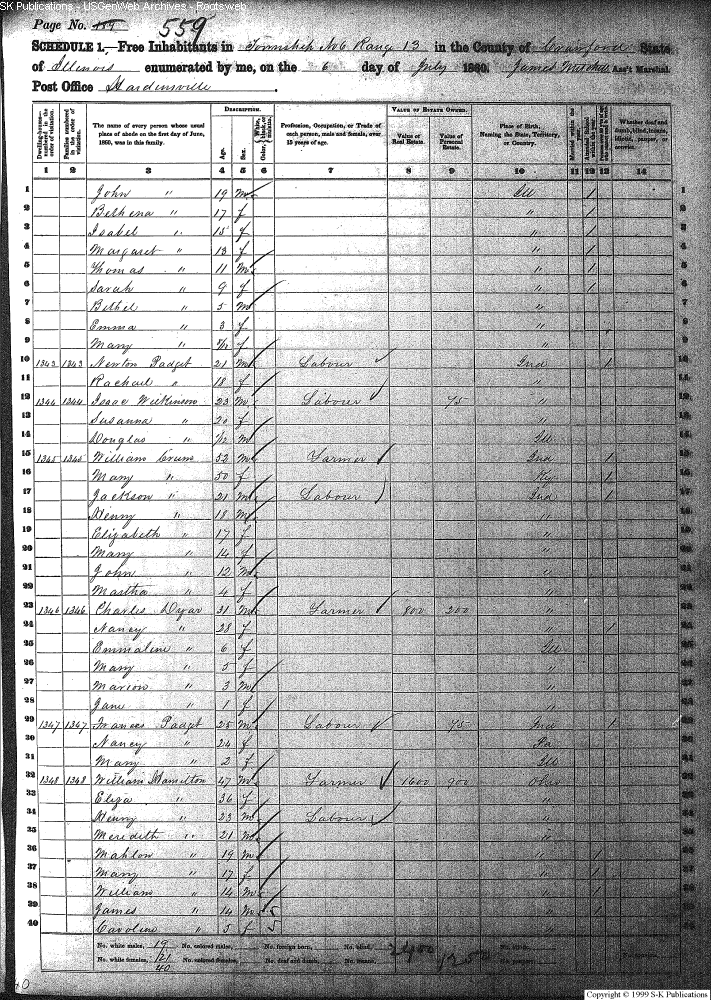 SK Publications - USGenWeb Archives - Rootsweb
Page No. 559
SCHEDULE 1.—Free Inhabitants in Township No 6 Range 13 in the County of Crawford State
of Illinois enumerated by me, on the 6 day of July 1860. James Mitchell Ass't Marshal.
Post Office Hardinsville
Dwelling-houses—numbered in the order of visitation. Families numbered in the order of visitation. The name of every person whose usual place of abode on the first day of June, 1860, was in this family. DESCRIPTION. Age. Sex. Color, White, black, or mulatto. Profession, Occupation, or Trade of each person, male and female, over 15 years of age. VALUE OF ESTATE OWNED. Value of Real Estate. Value of Personal Estate. Place of Birth, Naming the State, Territory, or Country. Married within the year. Attended School within the year. Whether deaf and dumb, blind, insane, idiotic, pauper, or convict.
1 2 3 4 5 6 7 8 9 10 11 12 13 14
1 John " 19 m Ill / 1
2 Bethena " 17 f " / 2
3 Isabel " 15 f " / 3
4 Margaret " 13 f " / 4
5 Thomas " 11 m " / 5
6 Sarah " 9 f " / 6
7 Bethel " 5 m " 7
8 Emma " 3 f " 8
9 Many " f " 9
10 1343 1343 Newton Padget 21 m Labour Ind / 10
11 Rachael " 18 f " 11
12 1344 1344 Isaac Wilkinson 23 m Labour 75 " 12
13 Susanna " 20 f " 13
14 Douglas " m Ill 14
15 1345 1345 William Crum 52 m Farmer Ind / 15
16 Many " 50 f Ky / 16
17 Jackson " 21 m Labour Ind / 17
18 Henny " 18 m " 18
19 Elizabeth " 17 f " 19
20 Many " 14 f " 20
21 John " 12 m " 21
22 Martha " 4 f " 22
23 1346 1346 Charles Dyar 31 m Farmer 800 200 " 23
24 Nancy " 28 f " / 24
25 Emmaline " 6 f Ill 25
26 Many " 5 f " 26
27 Marion " 3 m " 27
28 Jane " 1 f " 28
29 1347 1347 Frances Padget 25 m Labour 75 Ind / 29
30 Nancy " 24 f Pa 30
31 Many " 2 f Ill 31
32 1348 1348 William Hamilton 47 m Farmer 1600 900 Ohio 32
33 Eliza " 36 f " 33
34 Henny " 23 m Labour " 34
35 Meredith " 21 m " 35
36 Mahlon " 19 m " / 36
37 Many " 17 f " / 37
38 William " 14 m " / 38
39 James " 14 m " / 39
40 Caroline " 5 f 40
No. white males, 19 No. colored males, No. foreign born, No. blind, 2400 1250
No. white females, 21 No. colored females, No. deaf and dumb, No. insane,
40
Copyright © 1999 S-K Publications